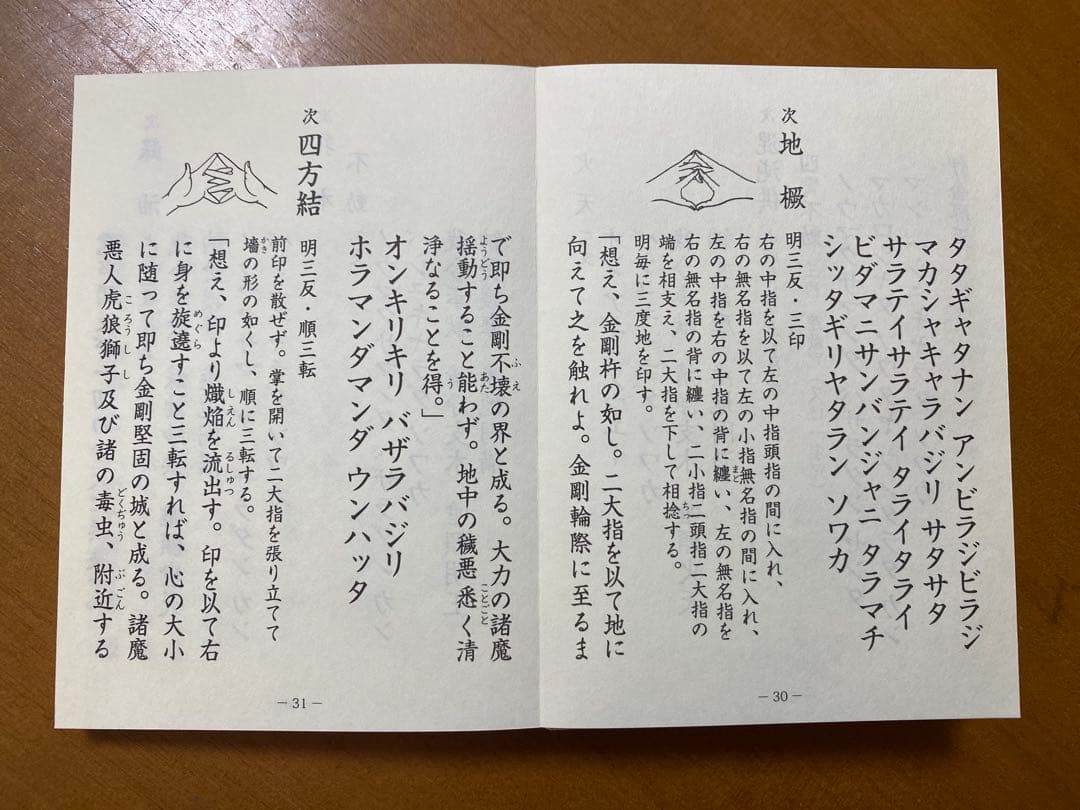 タタギャタナン アンビラジビラジ
マカシャキャラバジリ サタサタ
サラテイサラテイ タライタライ
ビダマニサンバンジャニ タラマチ
シッタギリヤタラン ソワカ
次 地橛
明三反・三印
右の中指を以て左の中指頭指の間に入れ、
右の無名指を以て左の小指無名指の間に入れ、
左の中指を右の中指の背に纏い、左の無名指を
右の無名指の背に纏い、二小指二頭指二大指の
端を相支え、二大指を下して相捻する。
明毎に三度地を印す。
「想え、金剛杵の如し。二大指を以て地に
向えて之を触れよ。金剛輪際に至るま
― 30 ―
で即ち金剛不壊の界と成る。大力の諸魔
揺動すること能わず。地中の穢悪悉く清
浄なることを得。」
オンキリキリ バザラバジリ
ホラマンダマンダ ウンハッタ
次 四方結
明三反・順三転
前印を散ぜず。掌を開いて二大指を張り立てて
墻の形の如くし、順に三転する。
「想え、印より熾焔を流出す。印を以て右
に身を旋遶すこと三転すれば、心の大小
に随って即ち金剛堅固の城と成る。諸魔
悪人虎狼獅子及び諸の毒虫、附近する
― 31 ―